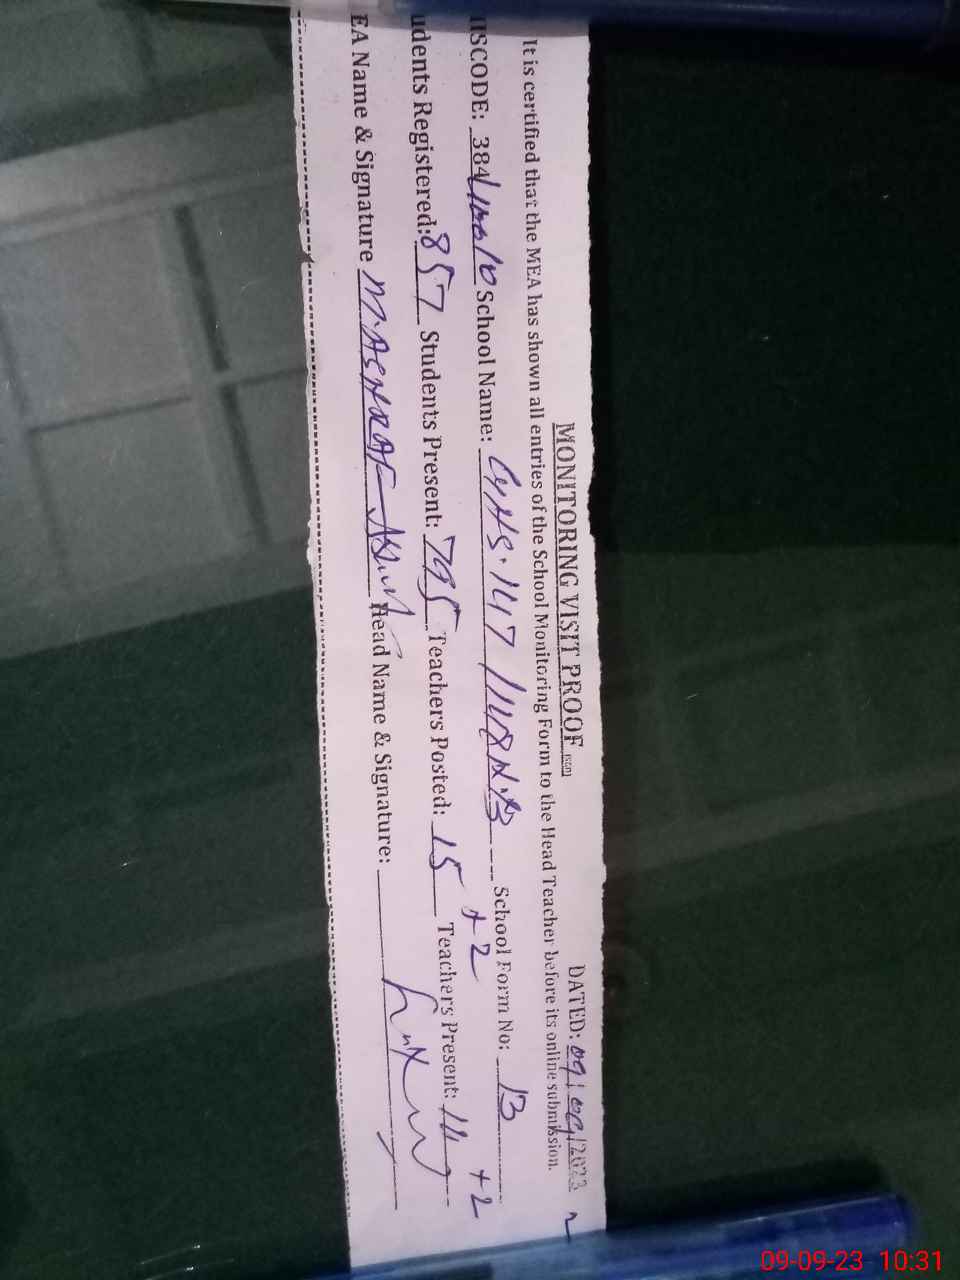 MONITORING VISIT PROOF DATED: 09/09/2023
It is certified that the MEA has shown all entries of the School Monitoring Form to the Head Teacher before its online submission.
ISCODE: 384 School Name: GHS. 147 School Form No: 13
udents Registered: 857 Students Present: 795 Teachers Posted: 15 +2 Teachers Present: +2
EA Name & Signature M. ASHRAF Head Name & Signature:
09-09-23 10:31